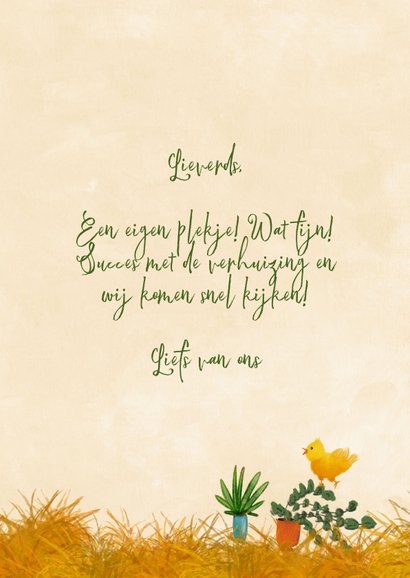 Lieverds,
Een eigen plekje! Wat fijn!
Succes met de verhuizing en
wij komen snel kijken!
Liefs van ons